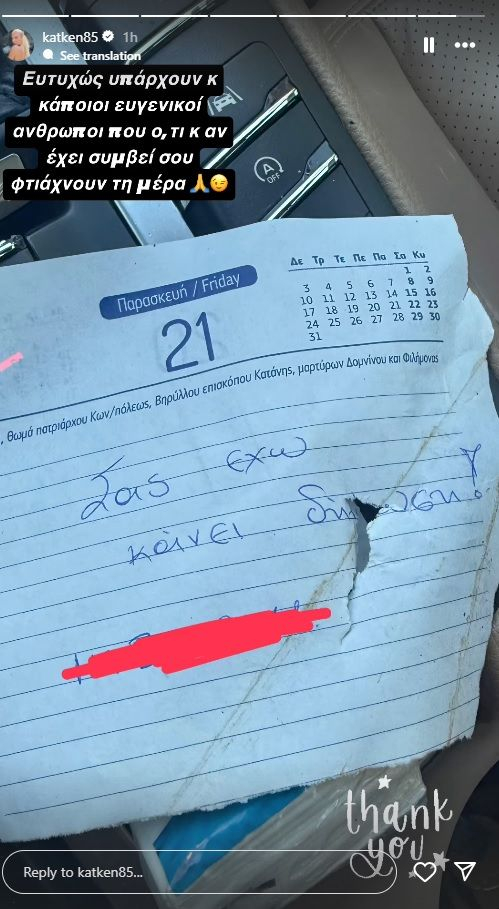 katken85 1h
See translation
Ευτυχώς υπάρχουν κ
κάποιοι ευγενικοί
ανθρωποι που ο,τι κ αν
έχει συμβεί σου
φτιάχνουν τη μέρα 🙏😉
A
OFF
Παρασκευή / Friday
21
Δε Τρ Τε Πε Πα Σα Κυ
1 2
3 4 5 6 7 8 9
10 11 12 13 14 15 16
17 18 19 20 21 22 23
24 25 26 27 28 29 30
31
, Θωμά πατριάρχου Κων/πόλεως, Βηρύλλου επισκόπου Κατάνης, μαρτύρων Δομνίνου και Φιλήμονος
Σας εχω
κάινει !
thank
you
Reply to katken85...